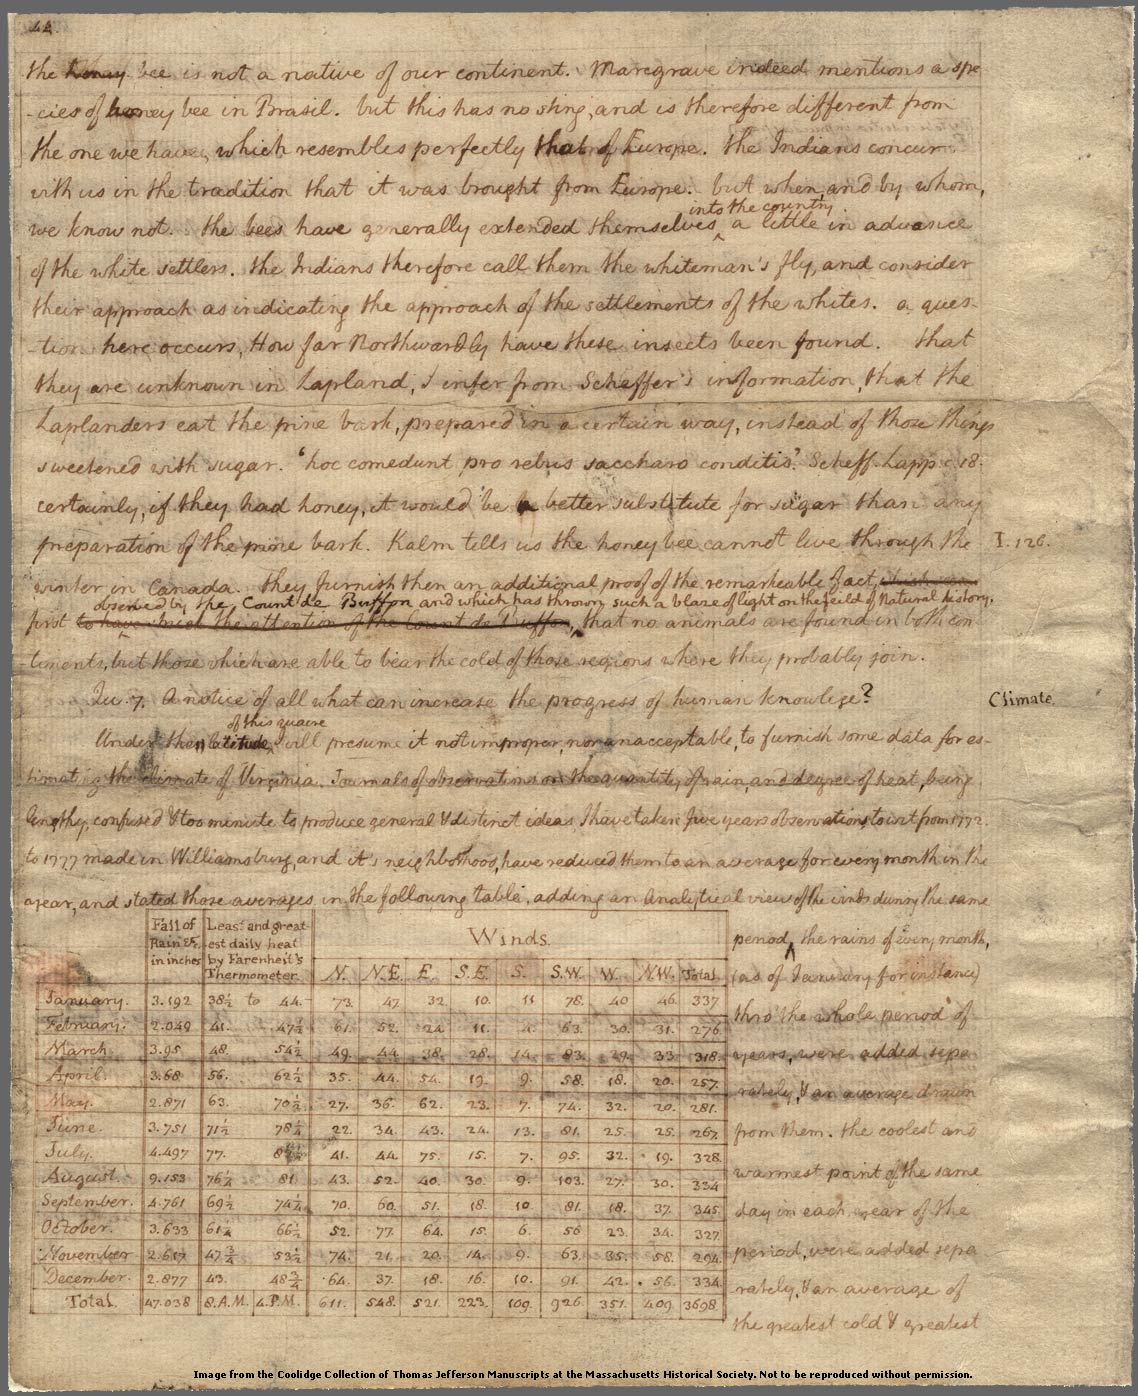 44.
the honey bee is not a native of our continent. Marcgrave indeed mentions a spe
-cies of honey bee in Brasil. but this has no sting, and is therefore different from
the one we have, which resembles perfectly that of Europe. the Indians concur
with us in the tradition that it was brought from Europe. but when, and by whom,
into the country.
we know not. the bees have generally extended themselves ‸ a little in advance
of the white settlers. the Indians therefore call them the white man's fly, and consider
their approach as indicating the approach of the settlements of the whites. a ques-
-tion here occurs, How far Northwardly have these insects been found. that
they are unknown in Lapland, I infer from Scheffer's information, that the
Laplanders eat the pine bark, prepared in a certain way, instead of those things
sweetened with sugar. 'hoc comedunt pro rebus saccharo conditis.' Scheff. Lapp c. 18.
certainly, if they had honey, it would be a better substitute for sugar than any
preparation of the pine bark. Kalm tells us the honey bee cannot live through the
I. 126.
winter in Canada. They furnish then an additional proof of the remarkeable fact,
observed by the Count de Buffon and which has thrown such a blaze of light on the feild of Natural history,
first to have struck the attention of the Count de Buffon, that no animals are found in both con
-tinents, but those which are able to bear the cold of those regions where they probably join.
Qu. 7. A notice of all what can increase the progress of human knowlege?
Climate.
of this quaere
Under the latitude I will presume it not improper, nor unacceptable, to furnish some data for es-
timating the climate of Virginia. Journals of observations on the quantity of rain, and degree of heat, being
lengthy, confused & too minute to produce general & distinct ideas, I have taken five years observations, to wit from 1772.
to 1777 made in Williamsburg, and it's neighborhood, have reduced them to an average for every month in the
year, and stated those averages in the following table, adding an Analytical view of the winds during the same
Fall of Rain &c. in inches
Least and great-est daily heat by Farenheit's Thermometer.
Winds.
N. N.E. E. S.E. S. S.W. W. N.W. Total
January. 3.192 38½ to 44. 73. 47. 32. 10. 11 78. 40 46. 337
February. 2.049 41. 47½ 61. 52. 24. 11. 4. 63. 30. 31. 276
March. 3.95 48. 54½ 49. 44. 38. 28. 14. 83. 29. 33 318.
April. 3.68 56. 62½ 35. 44. 54. 19. 9. 58. 18. 20. 257.
May. 2.871 63. 70½ 27. 36. 62. 23. 7. 74. 32. 20. 281.
June. 3.751 71½ 78¼ 22. 34. 43. 24. 13. 81. 25. 25. 267.
July. 4.497 77. 41. 44. 75. 15. 7. 95. 32. 19. 328.
August. 9.153 76¼ 81. 43. 52. 40. 30. 9. 103. 27. 30. 334
September. 4.761 69½ 74¼ 70. 60. 51. 18. 10. 81. 18. 37. 345.
October. 3.633 61¼ 66½ 52. 77. 64. 15. 6. 56 23. 34. 327.
November 2.617 47¾ 53½ 74. 21. 20. 14. 9. 63. 35. 58. 294.
December. 2.877 43. 48¾ 64. 37. 18. 16. 10. 91. 42. 56. 334.
Total. 47.038 8.A.M. 4.P.M. 611. 548. 521. 223. 109. 926. 351. 409 3698
period, ‸ the rains of every month,
(as of January for instance)
thro' the whole period of
years, were added sepa
rately, & an average drawn
from them. the coolest and
warmest point of the same
day in each year of the
period, were added sepa
rately, & an average of
the greatest cold & greatest
Image from the Coolidge Collection of Thomas Jefferson Manuscripts at the Massachusetts Historical Society. Not to be reproduced without permission.